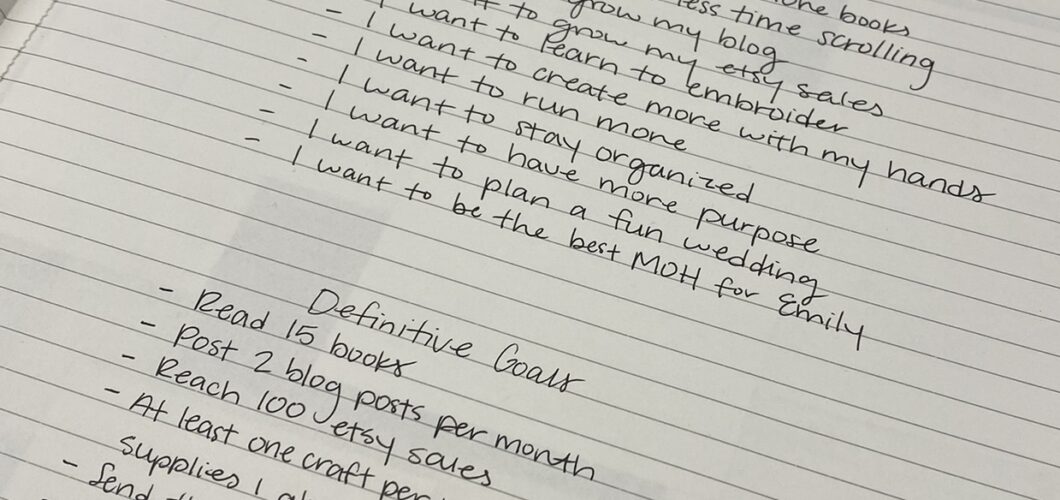 books
less time scrolling
grow my blog
to grow my etsy sales
I want to learn to embroider
- I want to create more with my hands
- I want to run more
- I want to stay organized
- I want to have more purpose
- I want to plan a fun wedding
- I want to be the best MOH for Emily
Definitive Goals
- Read 15 books
- Post 2 blog posts per month
- Reach 100 etsy sales
- At least one craft per
supplies I
- Send